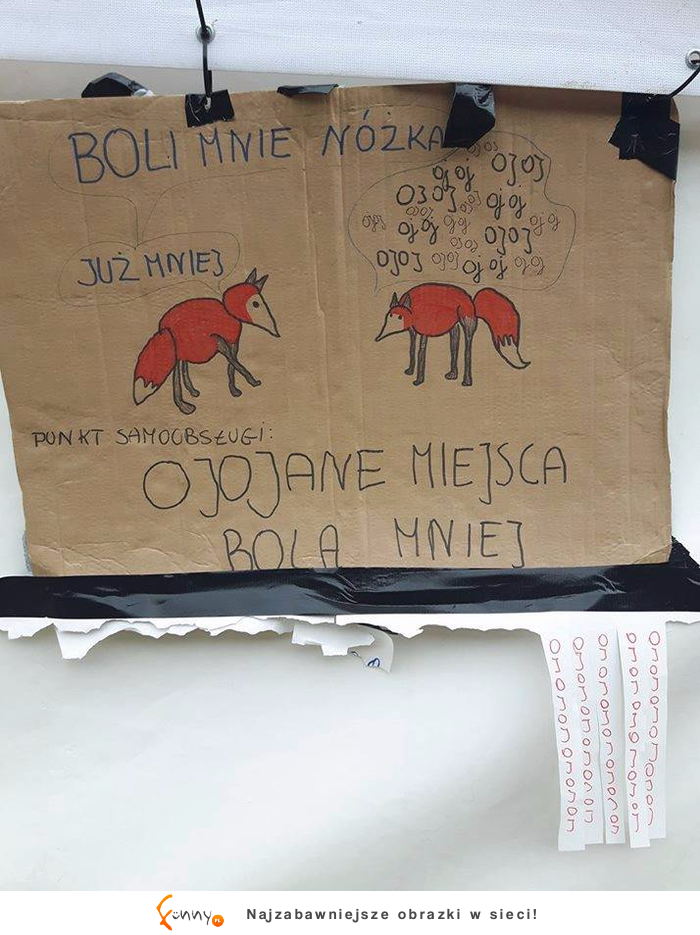 BOLI MNIE NÓŻKA
JUŻ MNIEJ
OJOJ OJOJ
OJ OJ
OJOJ OJOJ OJ OJ
OJOJ OJOJ OJ OJ OJ OJ
OJ OJ OJOJ
OJOJ
OJOJ OJOJ OJ OJ OJOJ
PUNKT SAMOOBSŁUGI:
OJOJANE MIEJSCA
BOLĄ MNIEJ
OJOJOJOJOJOJOJ
OJOJOJOJOJOJOJ
OJOJOJOJOJOJOJ
OJOJOJOJOJOJOJ
OJOJOJOJOJOJOJ
funny.pl
Najzabawniejsze obrazki w sieci!